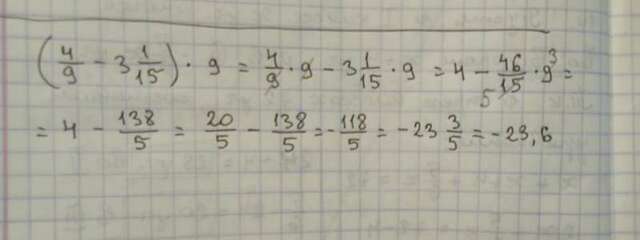 (4/9 - 3 1/15) · 9 = 4/9 · 9 - 3 1/15 · 9 = 4 - 46/15 · 9 3 5 =
= 4 - 138/5 = 20/5 - 138/5 = - 118/5 = - 23 3/5 = - 23,6